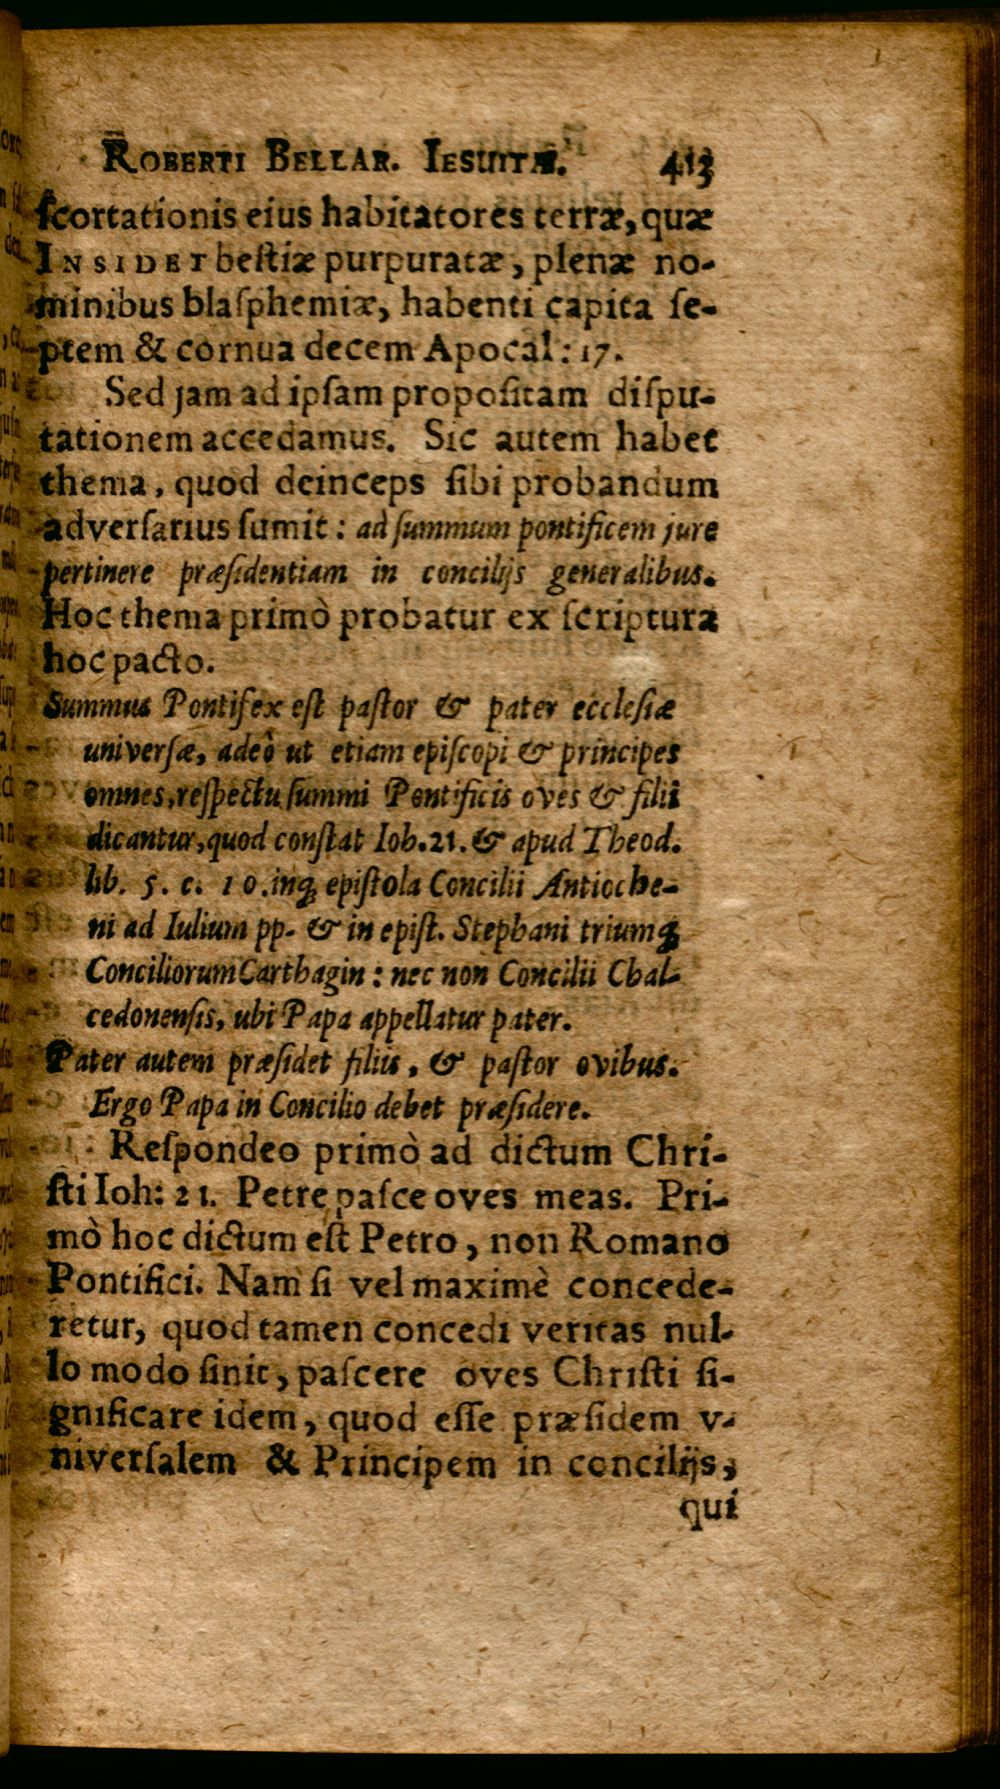 ROBERTI BELLAR. IESUITÆ. 413
ſcortationis eius habitatores terræ, quæ
INSIDET beſtiæ purpuratæ, plenæ no-
minibus blaſphemiæ, habenti capita ſe-
ptem & cornua decem Apocal: 17.
Sed jam ad ipſam propoſitam diſpu-
tationem accedamus. Sic autem habet
thema, quod deinceps ſibi probandum
adverſarius ſumit: ad ſummum pontificem jure
pertinere præſidentiam in concilijs generalibus.
Hoc thema primò probatur ex ſcriptura
hoc pacto.
Summus Pontifex eſt paſtor & pater eccleſiæ
univerſæ, adeò ut etiam epiſcopi & principes
omnes, reſpectu ſummi Pontificis oves & filii
dicantur, quod conſtat Ioh. 21. & apud Theod.
lib. 5. c. 10. inq; epiſtola Concilii Antioche-
ni ad Iulium pp. & in epiſt. Stephani triumq;
Conciliorum Carthagin: nec non Concilii Chal-
cedonenſis, ubi Papa appellatur pater.
Pater autem præſidet filiis, & paſtor ovibus.
Ergo Papa in Concilio debet præſidere.
Reſpondeo primò ad dictum Chri-
ſti Ioh: 21. Petre paſce oves meas. Pri-
mò hoc dictum eſt Petro, non Romano
Pontifici. Nam ſi vel maximè concede-
retur, quod tamen concedi veritas nul-
lo modo ſinit, paſcere oves Chriſti ſi-
gnificare idem, quod eſſe præſidem v-
niverſalem & Principem in concilijs,
qui